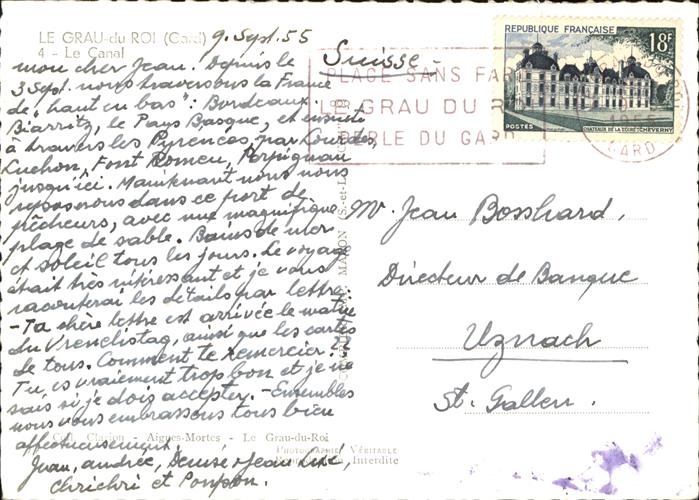 LE GRAU-du ROI (Gard)
4 - Le Canal
9. Sept. 55
Suisse
mon cher Jean. Depuis le
3 Sept. nous traversons la France
de "haut en bas": Bordeaux,
Biarritz, le Pays Basque, et ensuite
à travers les Pyrenées, par Lourdes,
Luchon, Font Romeu, Perpignan
jusqu'ici. Maintenant nous nous
reposons dans ce port de
pêcheurs, avec une magnifique
plage de sable. Bains de mer
et soleil tous les jours. Le voyage
était très intéressant et je vous
raconterai les détails par lettre.
- Ta chère lettre est arrivée le matin
du Vrenelistag, ainsi que les cartes
de tous. Comment te remercier?
Tu es vraiment trop bon et je ne
sais si je dois accepter. - Ensembles
nous vous embrassons tous bien
affectueusement,
Jean, andrée, Denise + Jean
Chrichri et Ponpon.
Coll. Clarion - Aigues-Mortes - Le Grau-du-Roi
Photographie Véritable
Reproduction Interdite
MACON (S.-et-L.)
RÉPUBLIQUE FRANÇAISE
18F
POSTES
CHATEAUX DE LA LOIRE: CHEVERNY
PLAGE SANS FAR
LE GRAU DU R
PERLE DU GARD
GARD
Mr. Jean Bosshard,
Directeur de Banque
Uznach
St. Gallen.